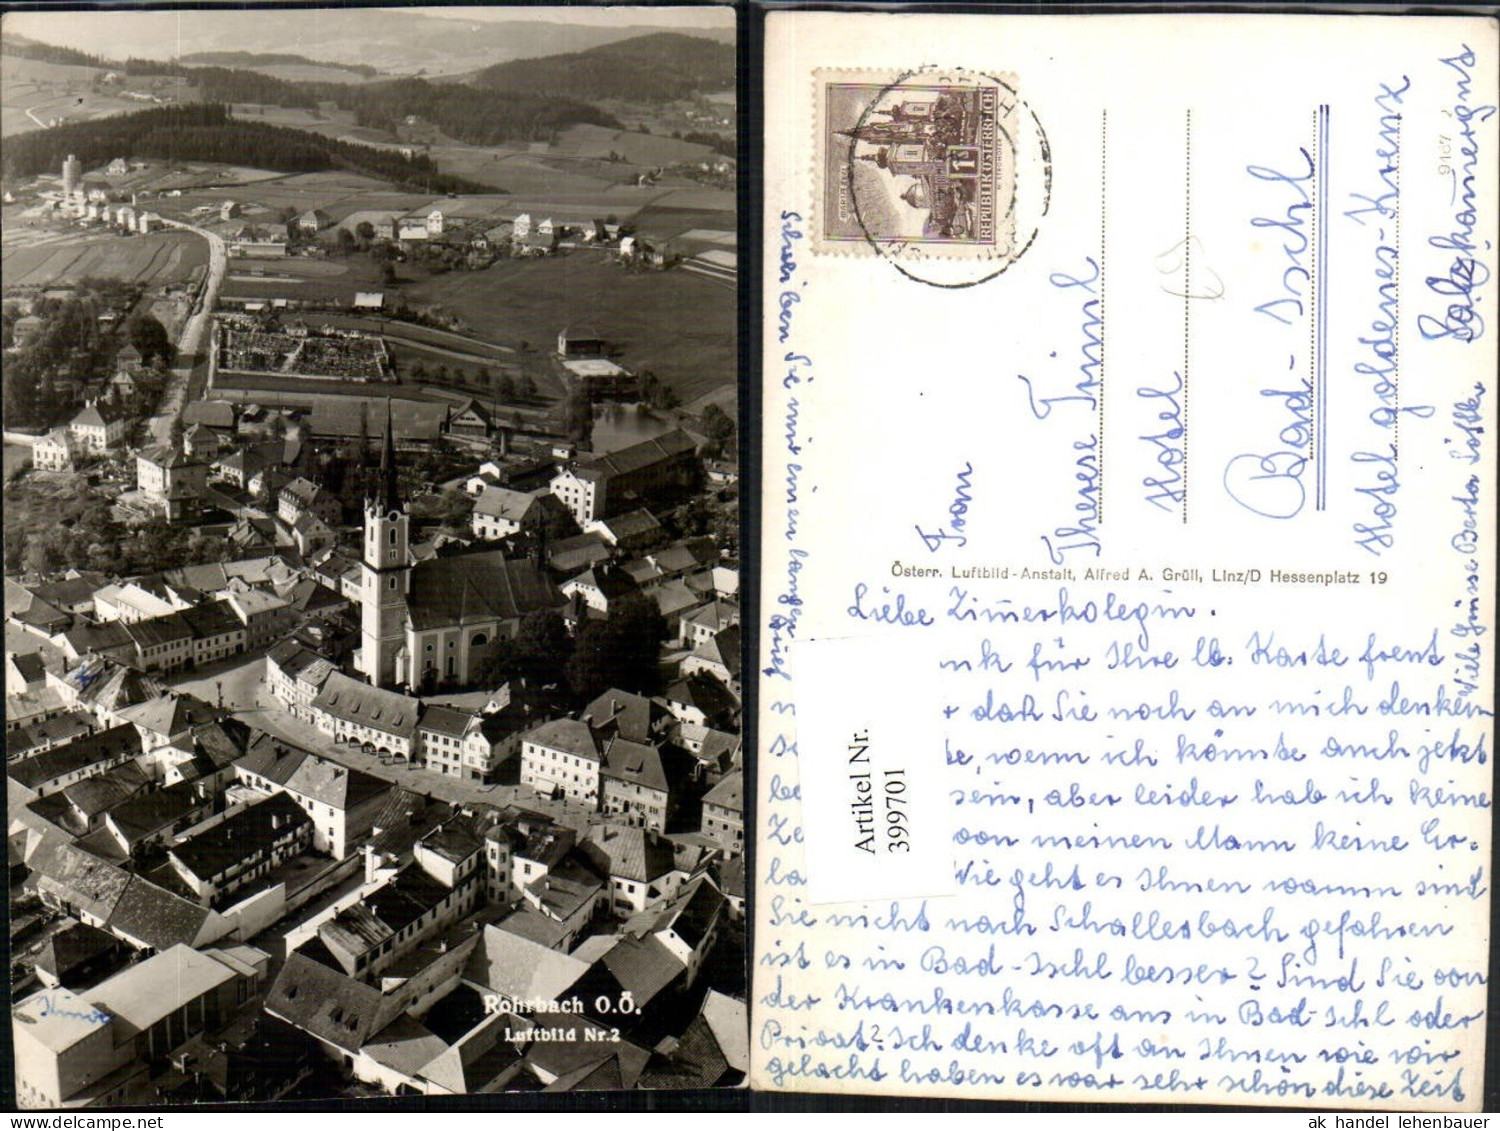 Rohrbach O.Ö.
Luftbild Nr. 2
Kino
REPUBLIK ÖSTERREICH
1
Frau
Therese Trinl
Hotel
Bad-Ischl
Hotel goldenes-Krenz
Salzkammergut
Österr. Luftbild-Anstalt, Alfred A. Grüll, Linz/D Hessenplatz 19
Liebe Zimerkolegin.
für Ihre lb. Karte freut
daß Sie noch an mich denken
wenn ich könnte auch jetzt
sein, aber leider hab ich keine
von meinen Mann keine Er-
Wie geht es Ihnen warum sind
Sie nicht nach Schallerbach gefahren
ist es in Bad-Ischl besser? Sind Sie von
der Krankenkasse aus in Bad-Ischl oder
Privat? Ich denke oft an Ihnen wie wir
gelacht haben es war sehr schön diese Zeit
Schreiben Sie mir einen langen Brief
Viele Grüsse Berta Löffler
Artikel Nr.
399701
ak handel lehenbauer